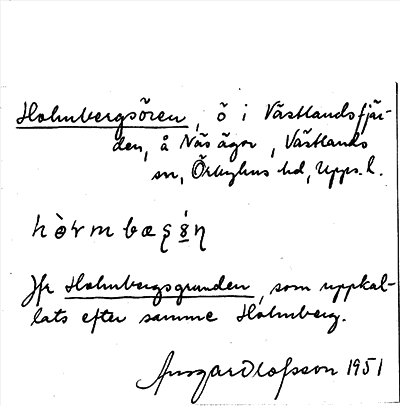 Holmbergsören, ö i Västlandsfjär-
den, å Näs ägor, Västlands
sn, Örbyhus hd, Upps. l.
Jfr Holmbergsgrunden, som uppkal-
lats efter samme Holmberg.
Ansgar Olofsson 1951